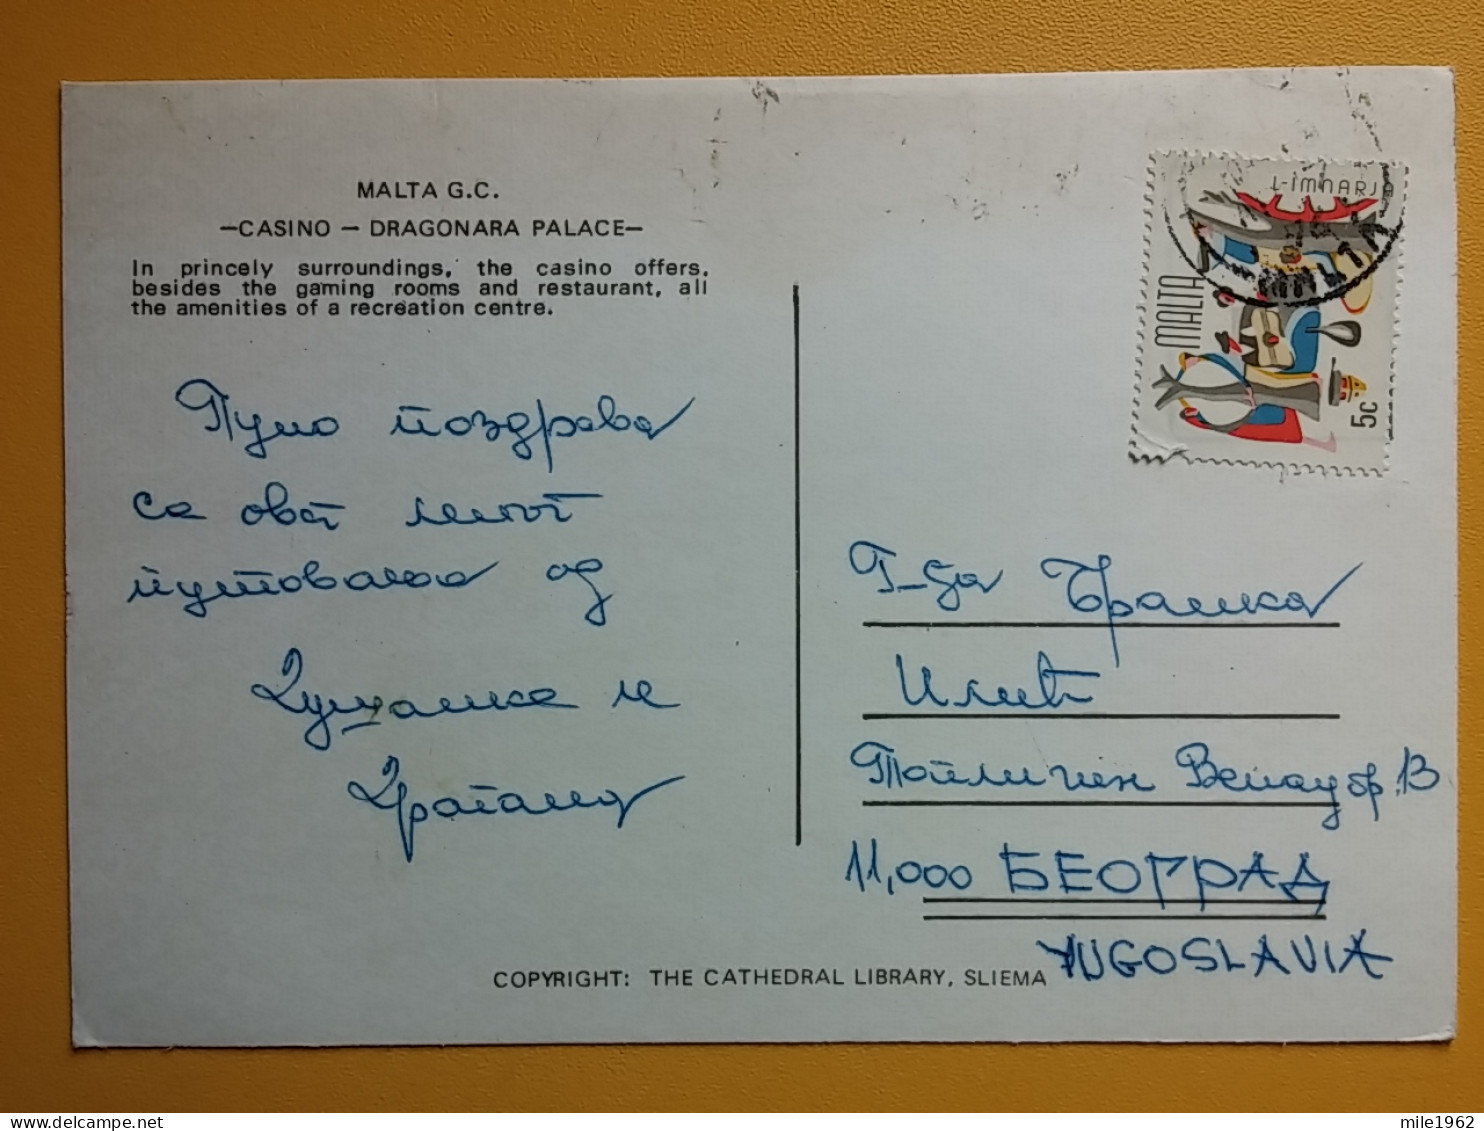 MALTA G.C.
—CASINO — DRAGONARA PALACE—
In princely surroundings, the casino offers,
besides the gaming rooms and restaurant, all
the amenities of a recreation centre.
Пуно поздрава
са овог лепог
путовања од
Душанке и
Драгана
L-IMNARJA
MALTA
5c
Г-ђа Бранка
Илић
Топличин Венац бр.
11,000 БЕОГРАД
YUGOSLAVIA
COPYRIGHT: THE CATHEDRAL LIBRARY, SLIEMA
mile1962